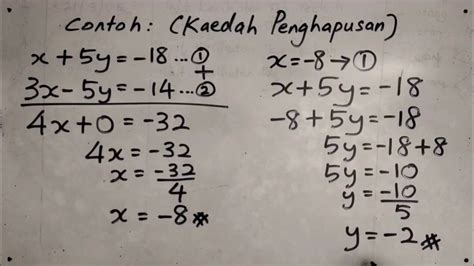 Contoh: (Kaedah Penghapusan)
x + 5y = -18 ... ①
+
3x - 5y = -14 ... ②
4x + 0 = -32
4x = -32
x = -32/4
x = -8 ⁂
x = -8 → ①
x + 5y = -18
-8 + 5y = -18
5y = -18 + 8
5y = -10
y = -10/5
y = -2 ⁂